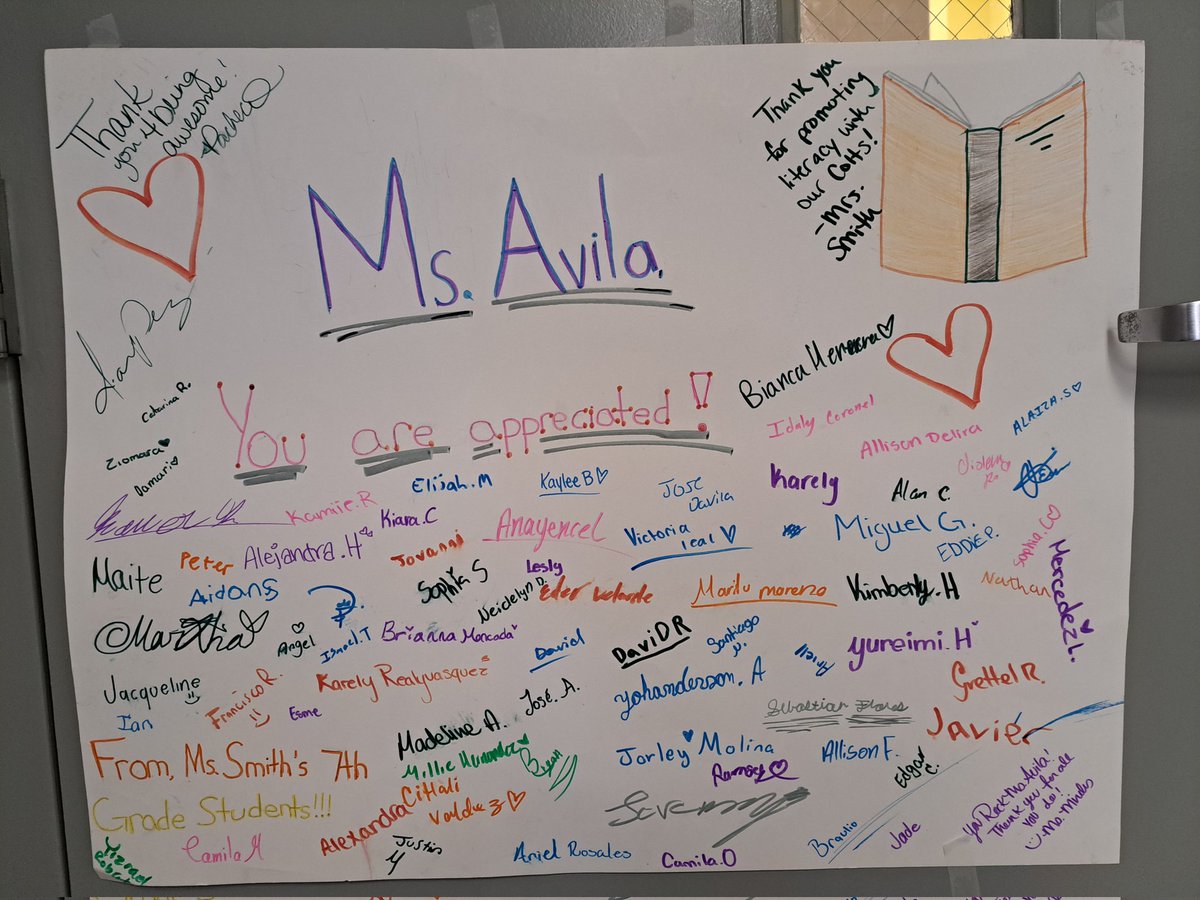 Thank
you 4 being
awesome!
Pacheco
Thank you
for promoting
literacy with
our Colts!
-Mrs.
Smith
Ms. Avila.
You are appreciated!!
Bianca Herrera
Idaly Coronel
Allison Delira
ALAIZA.S
Catarina R.
Ziomara
Damari
Elijah.M
Kaylee B
Jose
Davila
Karely
Alan C.
Kamie.R
Kiara.C
Anayencel
Victoria
leal
Miguel G.
EDDIE P.
Sophia C
Mercedez L.
Maite
Peter
Alejandra.H
Jovanni
Sophia S
Lesly
Neidelyn D.
Eder Velarde
Marilu moreno
Kimberly.H
Nathan
Aidans
Martha
Angel
Ismael.T
Brianna Moncada
David
DaviD R
Santiago
Ariell
yureimi.H
Jacqueline
Francisco R.
Karely Realyvasquez
José.A.
Yohanderson.A
Grettel R.
Ian
Esme
Sebastian Flores
Javier
Madeline A.
Millie Hernandez
Bryan
Jorley Molina
Allison F.
Edgar
C.
Ramsey
From, Ms. Smith's 7th
Grade Students!!!
Citlali
Valdez
Alexandra
Camila M
Justin
M
Ariel Rosales
Camila.O
Braulio
Jade
You Rock Ms. Avila!
Thank you for all
you do!